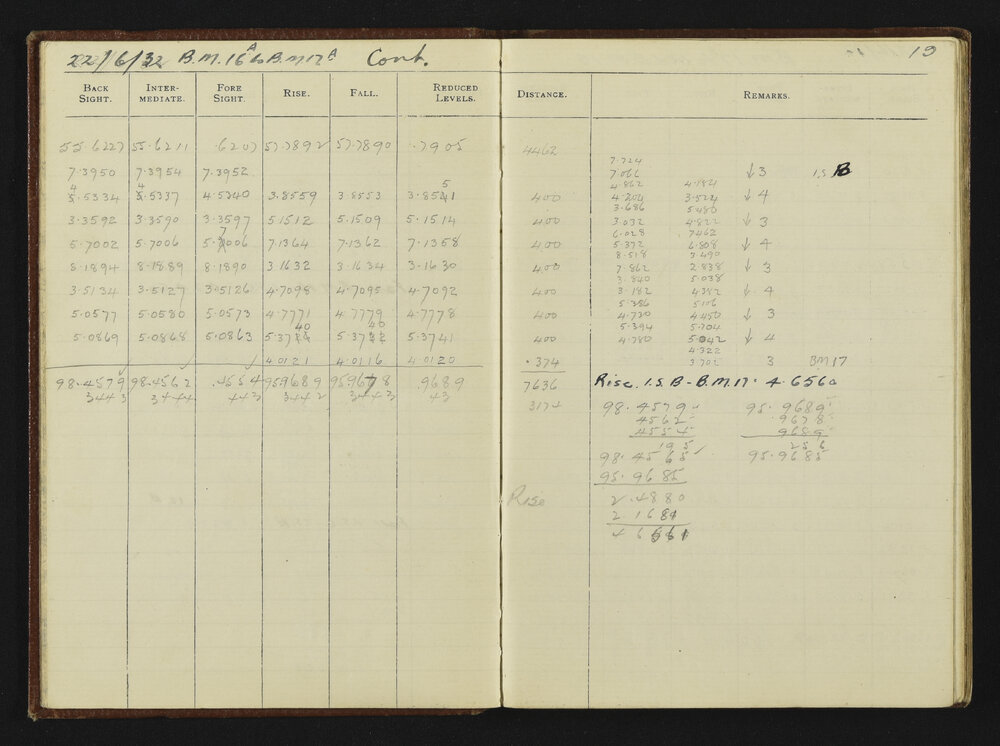 22/6/32 B.M. 16A to B.M 17A Cont.
19
BACK SIGHT. INTER-MEDIATE. FORE SIGHT. RISE. FALL. REDUCED LEVELS. DISTANCE. REMARKS.
55.6227 55.6211 .6207 57.7892 57.7890 .7905 4462
7.724
7.3950 7.3954 7.3952 7.066 ↓3 I.S B
4.862 4.184
4 4 5
5.5334 5.5337 4.5340 3.8559 3.8553 3.8541 400 4.204 3.524 ↓4
3.686 5.480
3.3592 3.3590 3.3597 5.1512 5.1509 5.1514 400 3.032 4.822 ↓3
6.028 7.462
7
5.7002 5.7006 5.7006 7.1364 7.1362 7.1358 400 5.372 6.808 ↓4
8.518 3.490
8.1894 8.1889 8.1890 3.1632 3.1634 3.1630 400 7.862 2.838 ↓3
3.840 5.038
3.5134 3.5127 3.5126 4.7098 4.7095 4.7092 400 3.182 4.382 ↓4
5.386 5.106
5.0577 5.0580 5.0573 4.7771 4.7779 4.7778 400 4.730 4.450 ↓3
5.394 5.704
40 40
5.0869 5.0868 5.0863 5.3744 5.3742 5.3741 400 4.780 5.042 ↓4
4.322
4.0121 4.0116 4.0120 .374 3.702 3 BM17
98.4579 98.4562 .4554 95.9689 95.9678 .9689 7636 Rise. I.S. B - B.M.17. 4.6560
3443 3444 443 3442 3443 43
3174 98.4579 95.9689
4562 .9678
4554 9689
195 256
98.4565 95.9685
95.9685
Rise 2.4880
2 1681
4 6561